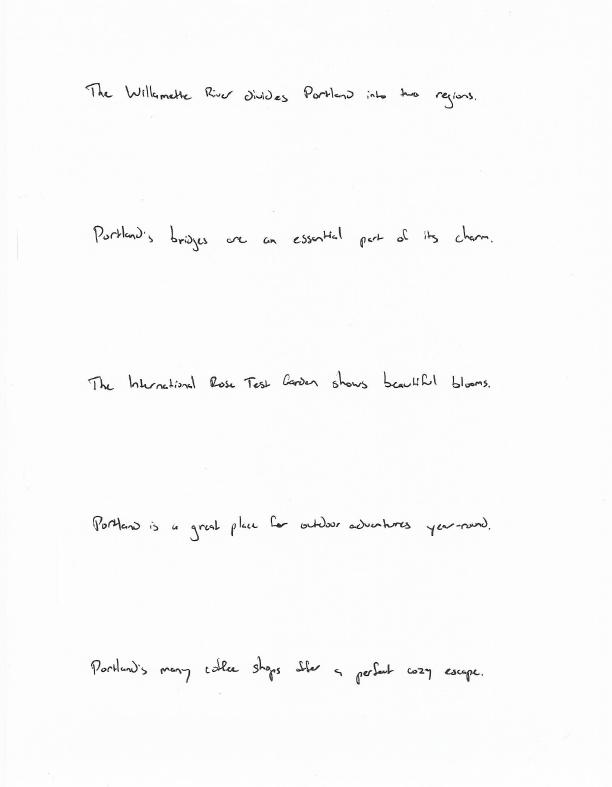 The Willamette River divides Portland into two regions.
Portland's bridges are an essential part of its charm.
The International Rose Test Garden shows beautiful blooms.
Portland is a great place for outdoor adventures year-round.
Portland's many coffee shops offer a perfect cozy escape.